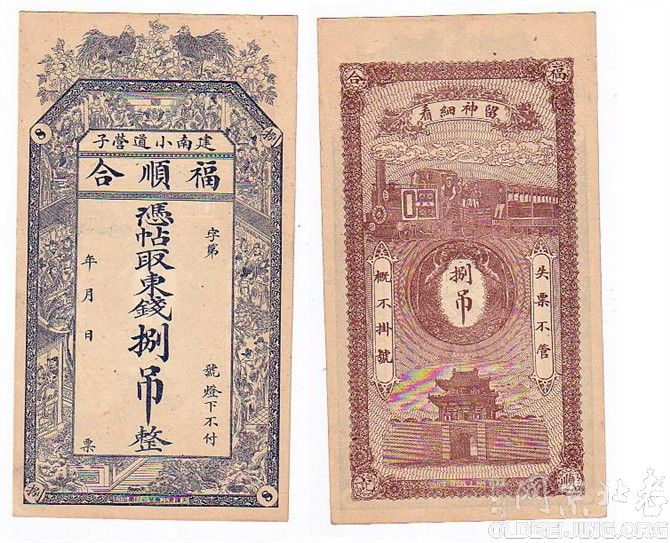 建南小道營子
福順合
字第 號燈下不付
憑帖取東錢捌吊整
年月日 票
8
捌
捌
8
福 合
留神細看
失票不管
捌吊
概不掛號
順 記
网京北老
OLDBEIJING.ORG